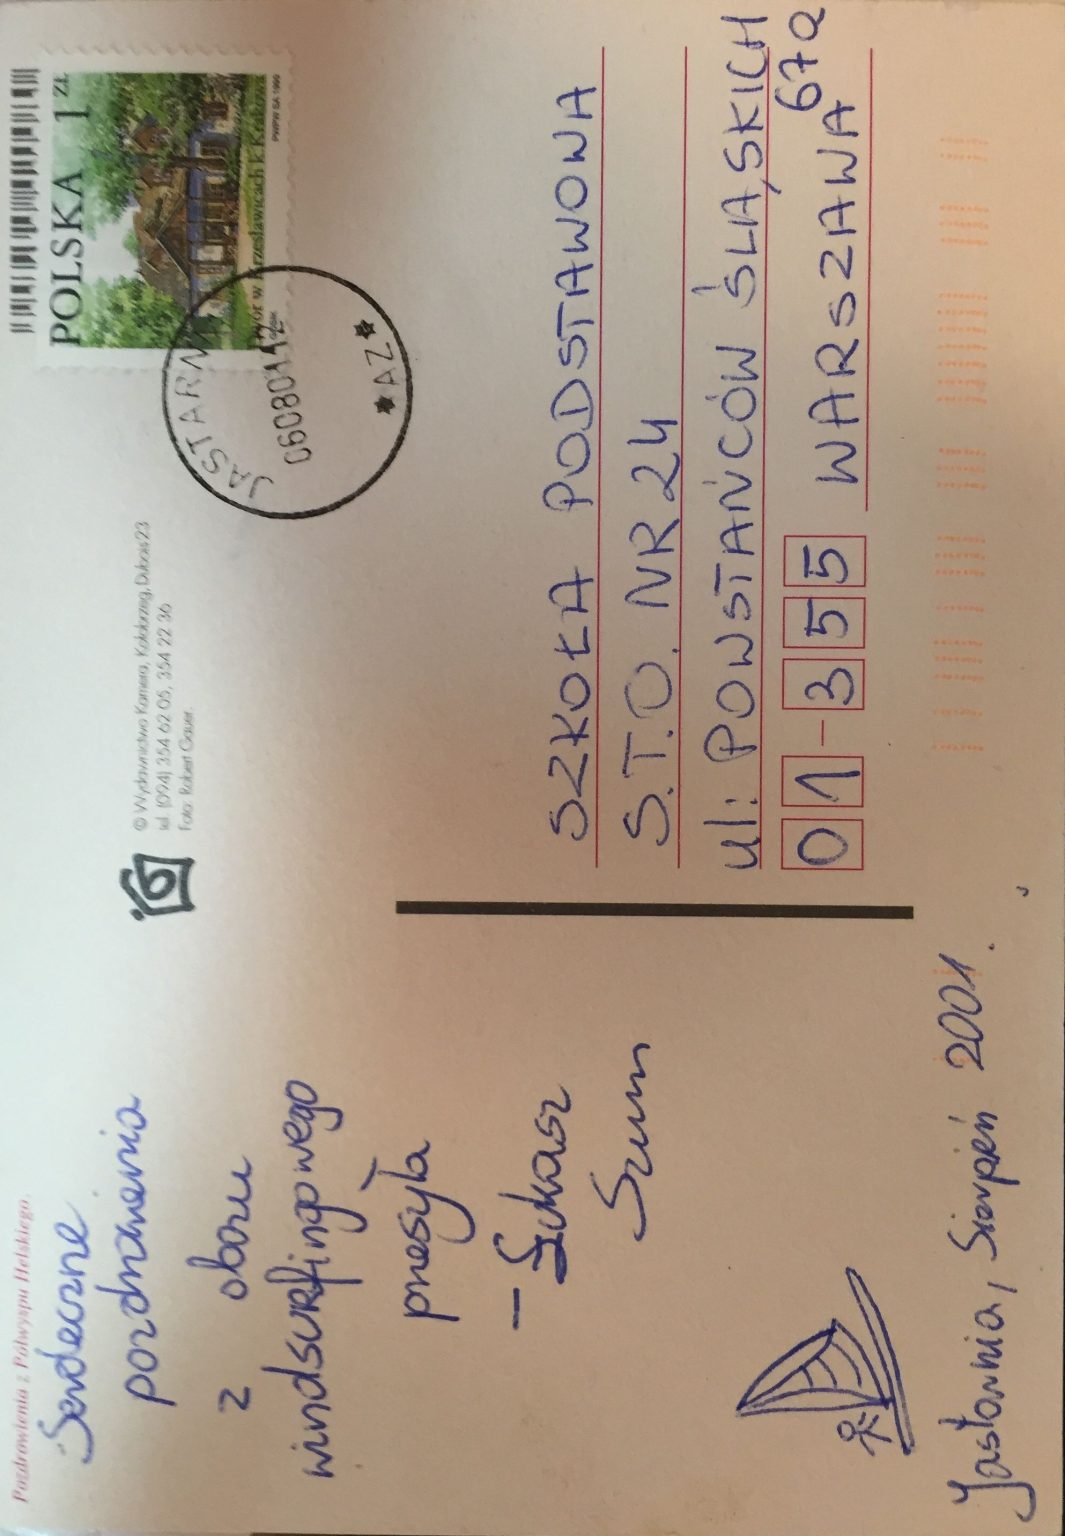 Pozdrowienia z Półwyspu Helskiego.
Serdeczne
pozdrowienia
z obozu
windsurfingowego
przesyła
– Łukasz
Szum
Jastarnia, Sierpień 2001.
© Wydawnictwo Kamera, Kołobrzeg, Dubois 23
tel. (094) 354 62 05, 354 22 36
Foto: Robert Gauer.
POLSKA 1 ZŁ
PWPW SA 1999
JASTARNIA
060801 12
* AZ *
SZKOŁA PODSTAWOWA
S.T.O. NR 24
ul: POWSTAŃCÓW ŚLĄSKICH
67a
01-355 WARSZAWA